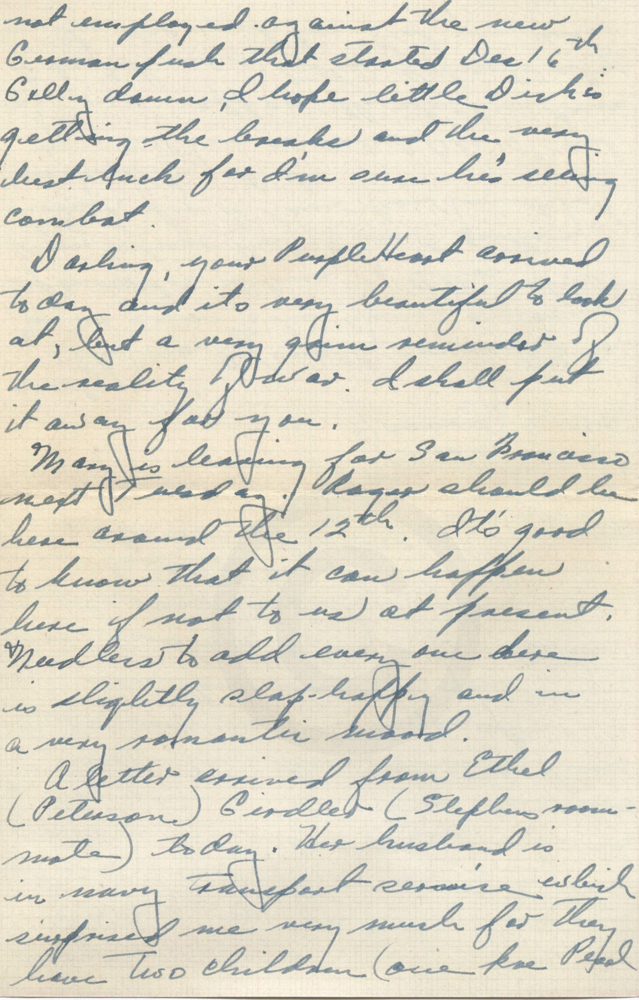 not employed against the new
German push that started Dec 16th
Golly damn, I hope little Dick is
getting the breaks and the very
best luck for I'm sure he's seeing
combat.
Darling, your Purple Heart arrived
today and it's very beautiful to look
at, but a very grim reminder of
the reality of war. I shall put
it away for you.
Mary is leaving for San Francisco
next Tuesday. Roger should be
here around the 12th. It's good
to know that it can happen
here if not to us at present.
Needless to add every one here
is slightly slap-happy and in
a very romantic mood.
A letter arrived from Ethel
(Peterson) Girdler (Stephens room-
mate) today. Her husband is
in navy transport service which
surprised me very much for they
have two children (one pre Pearl